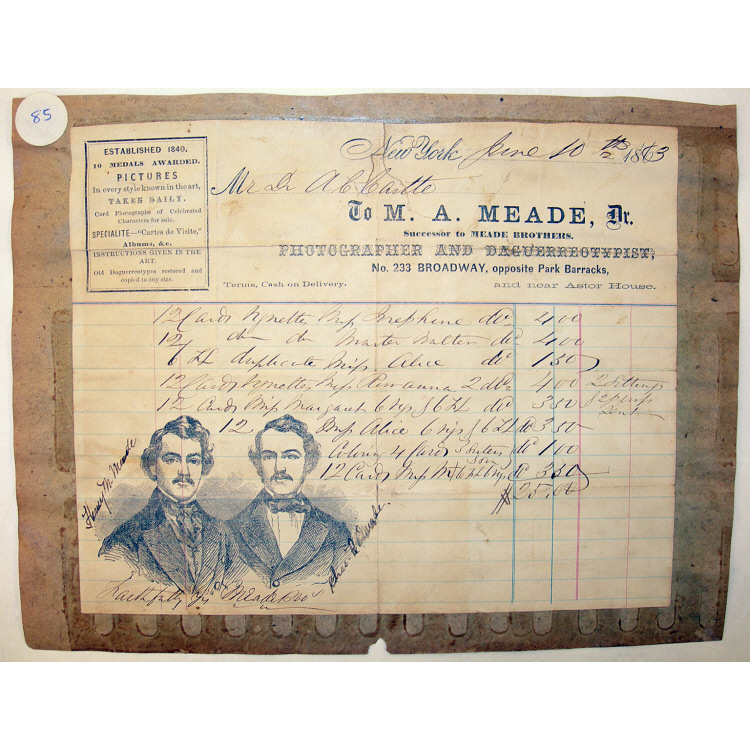 85
ESTABLISHED 1840.
10 MEDALS AWARDED.
PICTURES
In every style known in the art,
TAKEN DAILY.
Card Photographs of Celebrated
Characters for sale.
SPECIALITE—"Cartes de Visite,"
Albums, &c.
INSTRUCTIONS GIVEN IN THE
ART.
Old Daguerreotypes restored and
copied to any size.
New York June 10th 1863
Mr Dr A C Castle
To M. A. MEADE, Dr.
Successor to MEADE BROTHERS.
PHOTOGRAPHER AND DAGUERREOTYPIST,
No. 233 BROADWAY, opposite Park Barracks,
Terms, Cash on Delivery. and near Astor House.
12 Cards Vignettes Miss Josephine do 4 00
12 do do Master Walter do 4 00
6 duplicate Miss Alice do 1 50
12 Cards Vignettes Miss 2 do 4 00 2 Sittings
12 Cards Miss Margaret 6 Vig & 6 do 3 50
12 Miss Alice 6 Vig & 6 do 3 50
Coloring 4 Cards 3 Sisters do 1 00
12 Cards Miss do 3 50
$25.00
Henry W. M. Meade
Chas R Meade
Faithfully Yrs Meade Bros